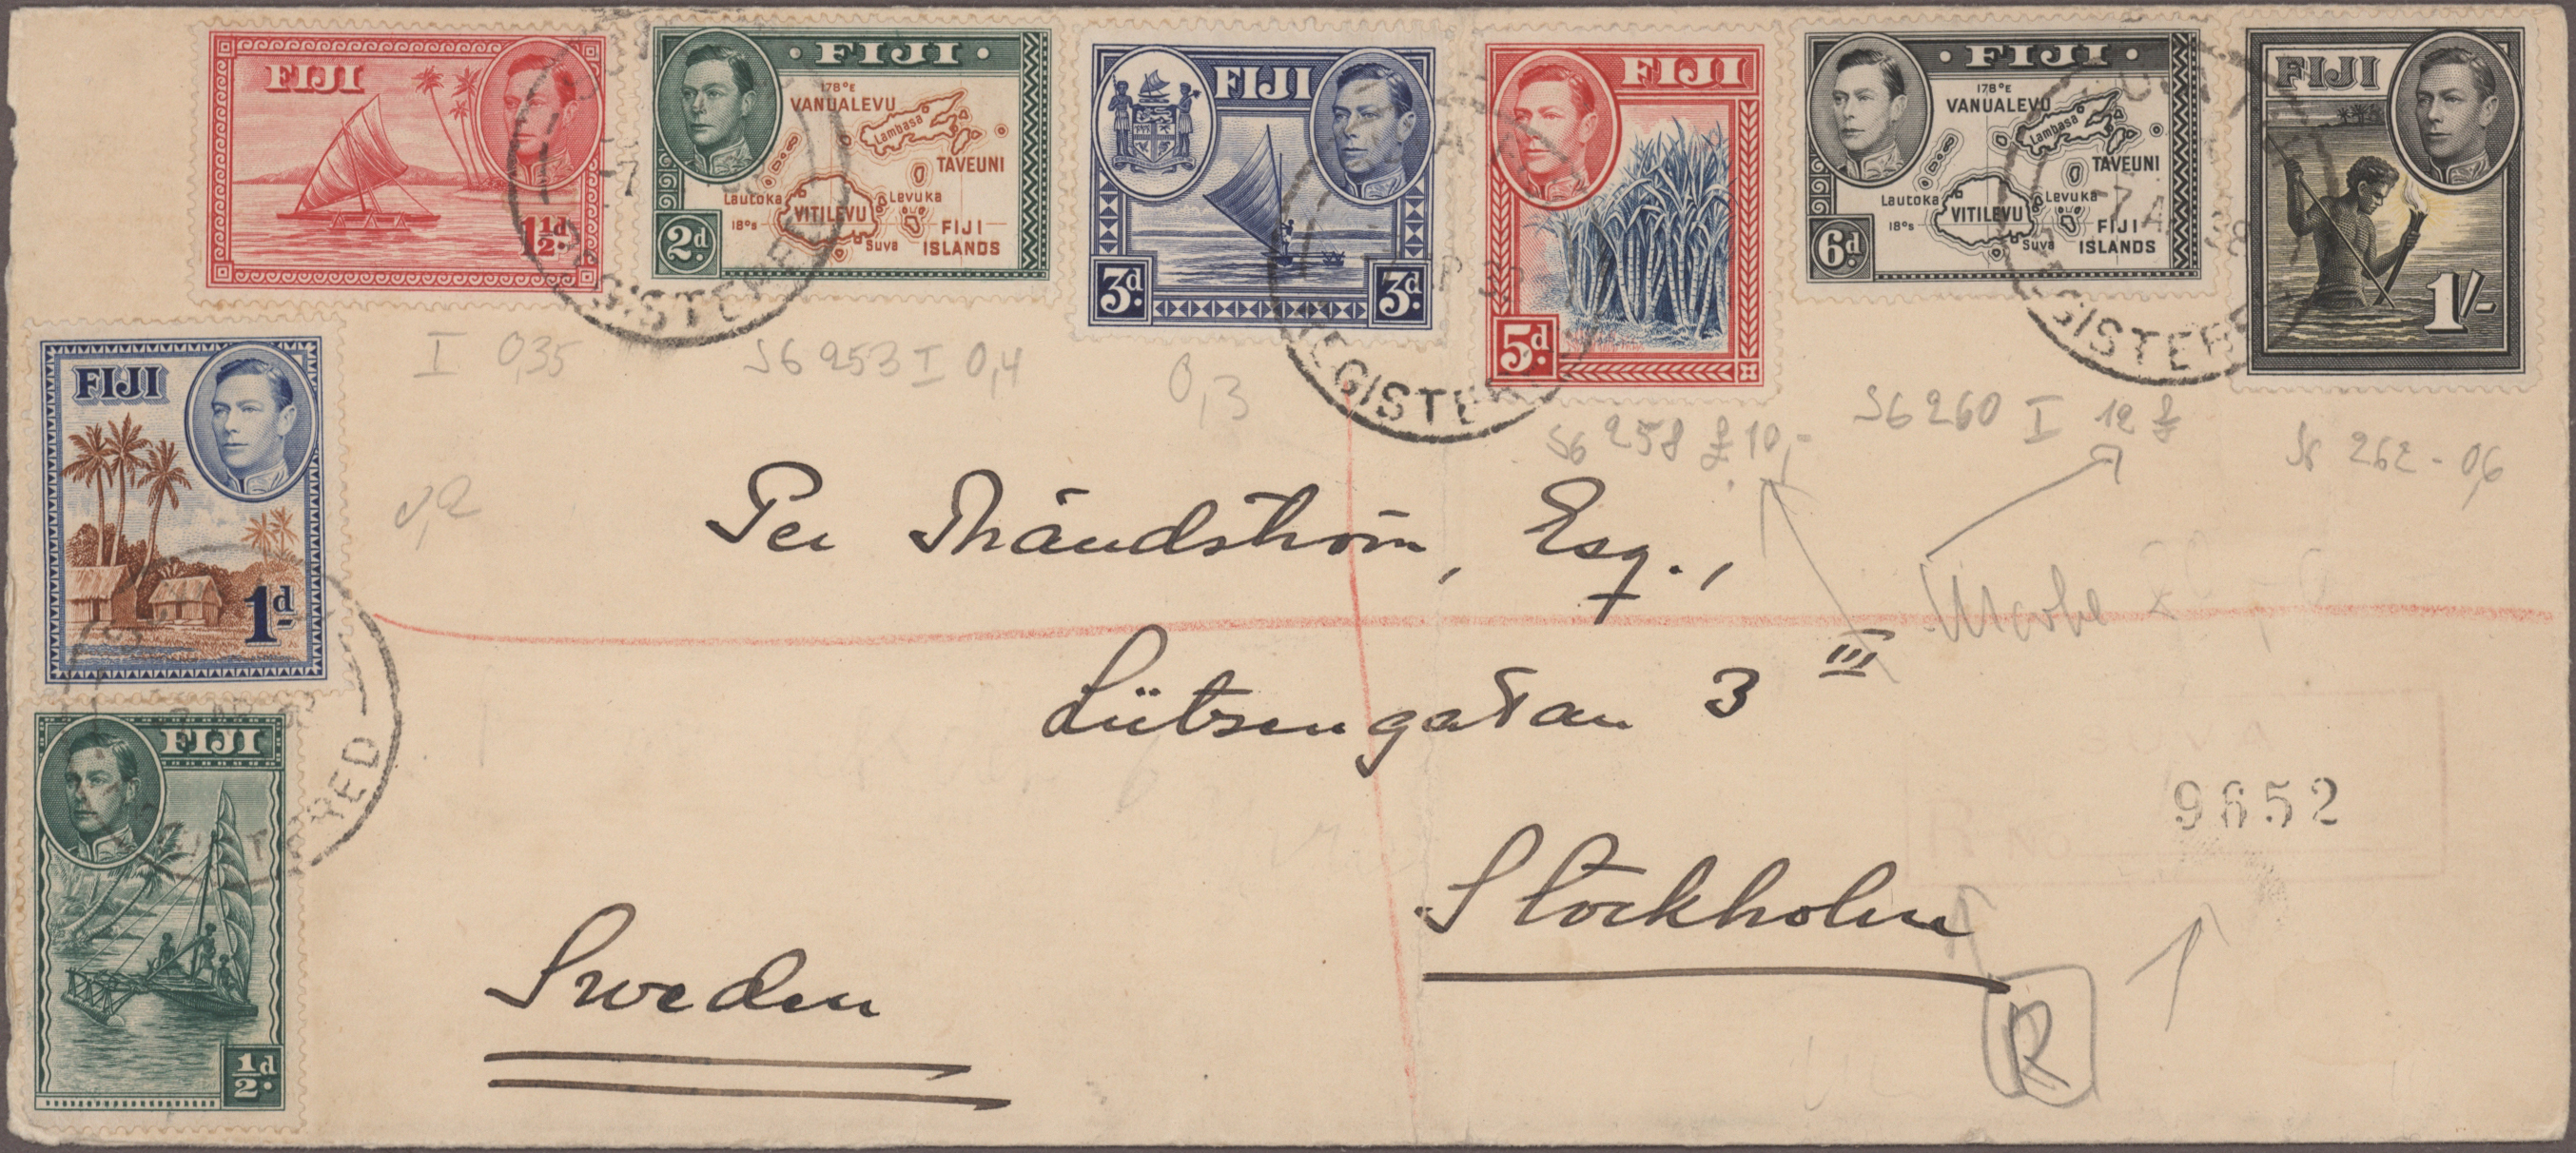 FIJI
1½d.
• FIJI •
178°E
VANUALEVU
Lambasa
TAVEUNI
Lautoka
VITILEVU
Levuka
18°S
Suva
FIJI
ISLANDS
2d.
FIJI
3d. 3d.
FIJI
5d.
• FIJI •
178°E
VANUALEVU
Lambasa
TAVEUNI
Lautoka
VITILEVU
Levuka
18°S
Suva
FIJI
ISLANDS
6d.
FIJI
1/-
REGISTERED
REGISTERED
REGISTERED
I 0,35
SG 253 I 0,4
0,3
SG 258 £ 10,-
SG 260 I 12 £
262 - 0,6
FIJI
1d
0,2
REGISTERED
FIJI
½d.
Per Esq.,
Lützengatan 3 III
Stockholm
Sweden
R No
9652
R